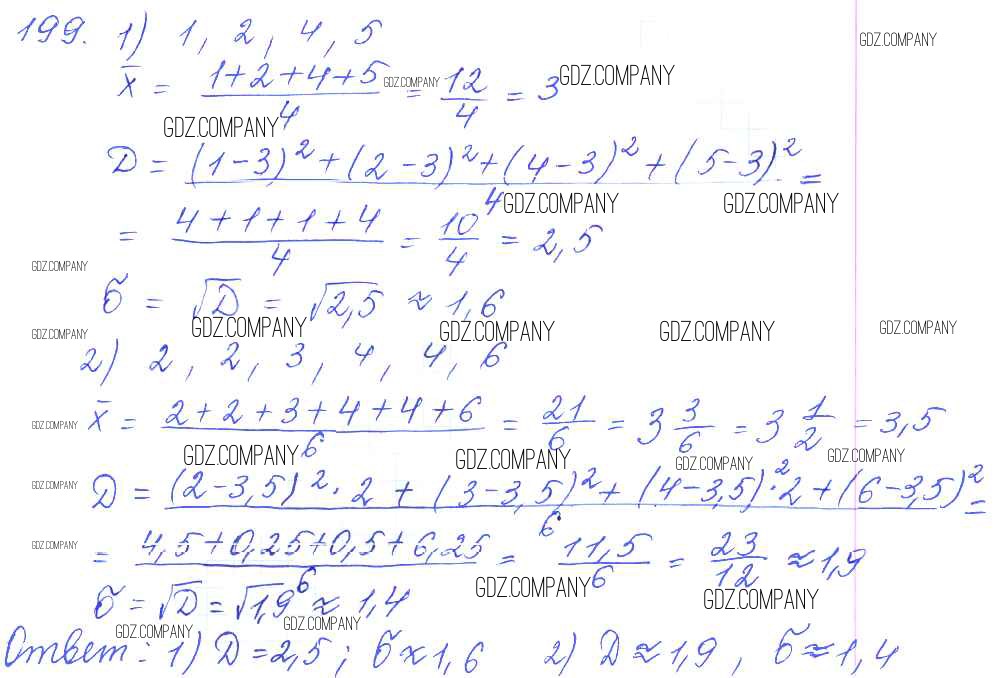 199. 1) 1, 2, 4, 5
GDZ.COMPANY
x̄ = (1+2+4+5)/4 = 12/4 = 3
GDZ.COMPANY GDZ.COMPANY
GDZ.COMPANY
D = ((1-3)² + (2-3)² + (4-3)² + (5-3)²)/4 =
GDZ.COMPANY GDZ.COMPANY
= (4+1+1+4)/4 = 10/4 = 2,5
GDZ.COMPANY
б = √D = √2,5 ≈ 1,6
GDZ.COMPANY GDZ.COMPANY GDZ.COMPANY GDZ.COMPANY GDZ.COMPANY
2) 2, 2, 3, 4, 4, 6
GDZ.COMPANY
x̄ = (2+2+3+4+4+6)/6 = 21/6 = 3 3/6 = 3 1/2 = 3,5
GDZ.COMPANY GDZ.COMPANY GDZ.COMPANY GDZ.COMPANY
GDZ.COMPANY
D = ((2-3,5)²·2 + (3-3,5)² + (4-3,5)²·2 + (6-3,5)²)/6 =
GDZ.COMPANY
= (4,5+0,25+0,5+6,25)/6 = 11,5/6 = 23/12 ≈ 1,9
GDZ.COMPANY GDZ.COMPANY
б = √D = √1,9 ≈ 1,4
GDZ.COMPANY GDZ.COMPANY
Ответ: 1) D = 2,5; б ≈ 1,6 2) D ≈ 1,9, б ≈ 1,4